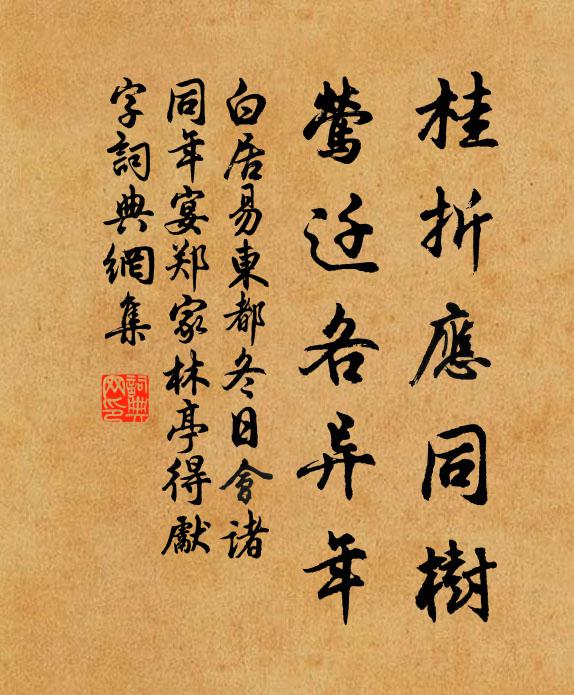 桂折應同樹
鶯迁各异年
白居易東都冬日會諸
同年宴郑家林亭得獻
字詞典網集
詞典
网印